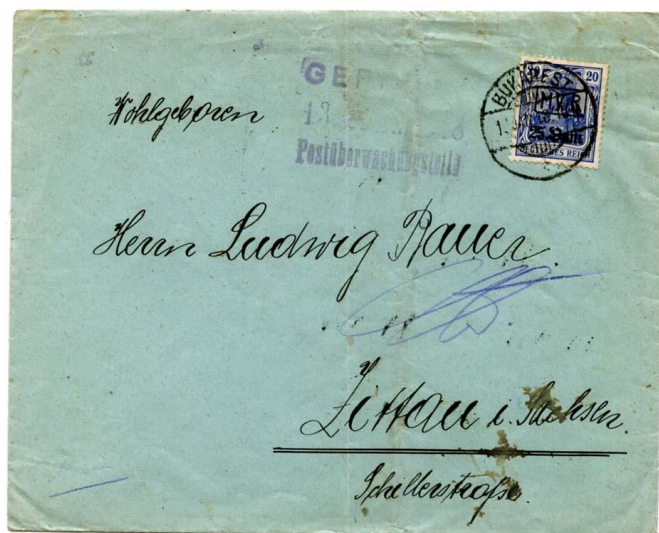 Wohlgeboren
Postüberwachungsstelle
20
BUKAREST
M.V.i.R.
25 Bani
DEUTSCHES REICH
Herrn Ludwig Bauer.
Zittau i. Sachsen.
Schillerstraße.